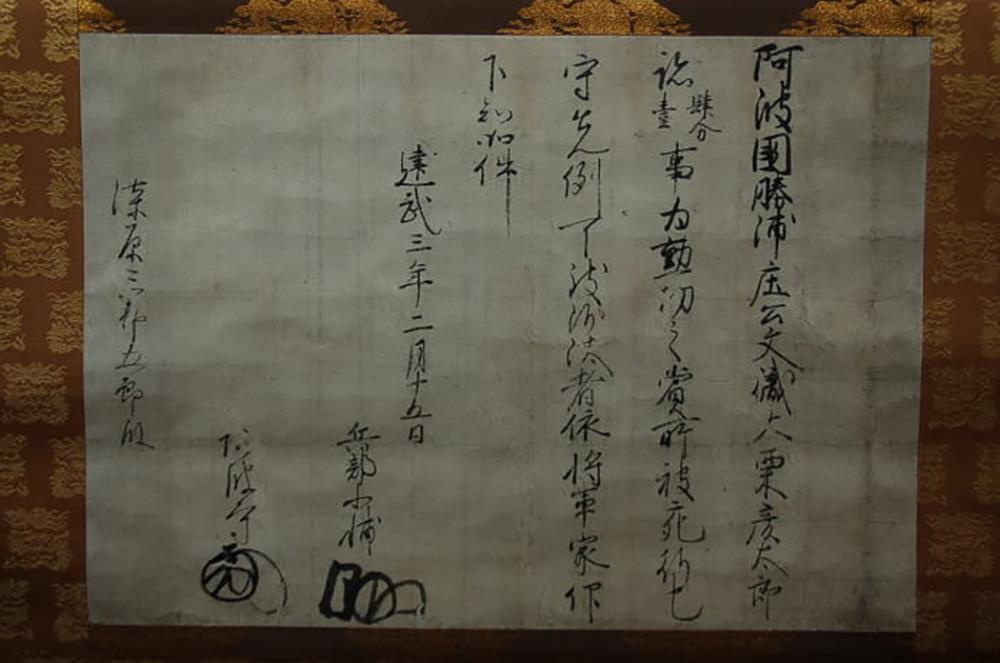 阿波國勝浦庄公文職大栗彦太郎
跡肆分壹事為勲功之賞所被充行也
守先例可致沙汰者依将軍家仰
下知如件
建武三年二月十五日
兵部少輔
阿波守
漆原三郎五郎殿